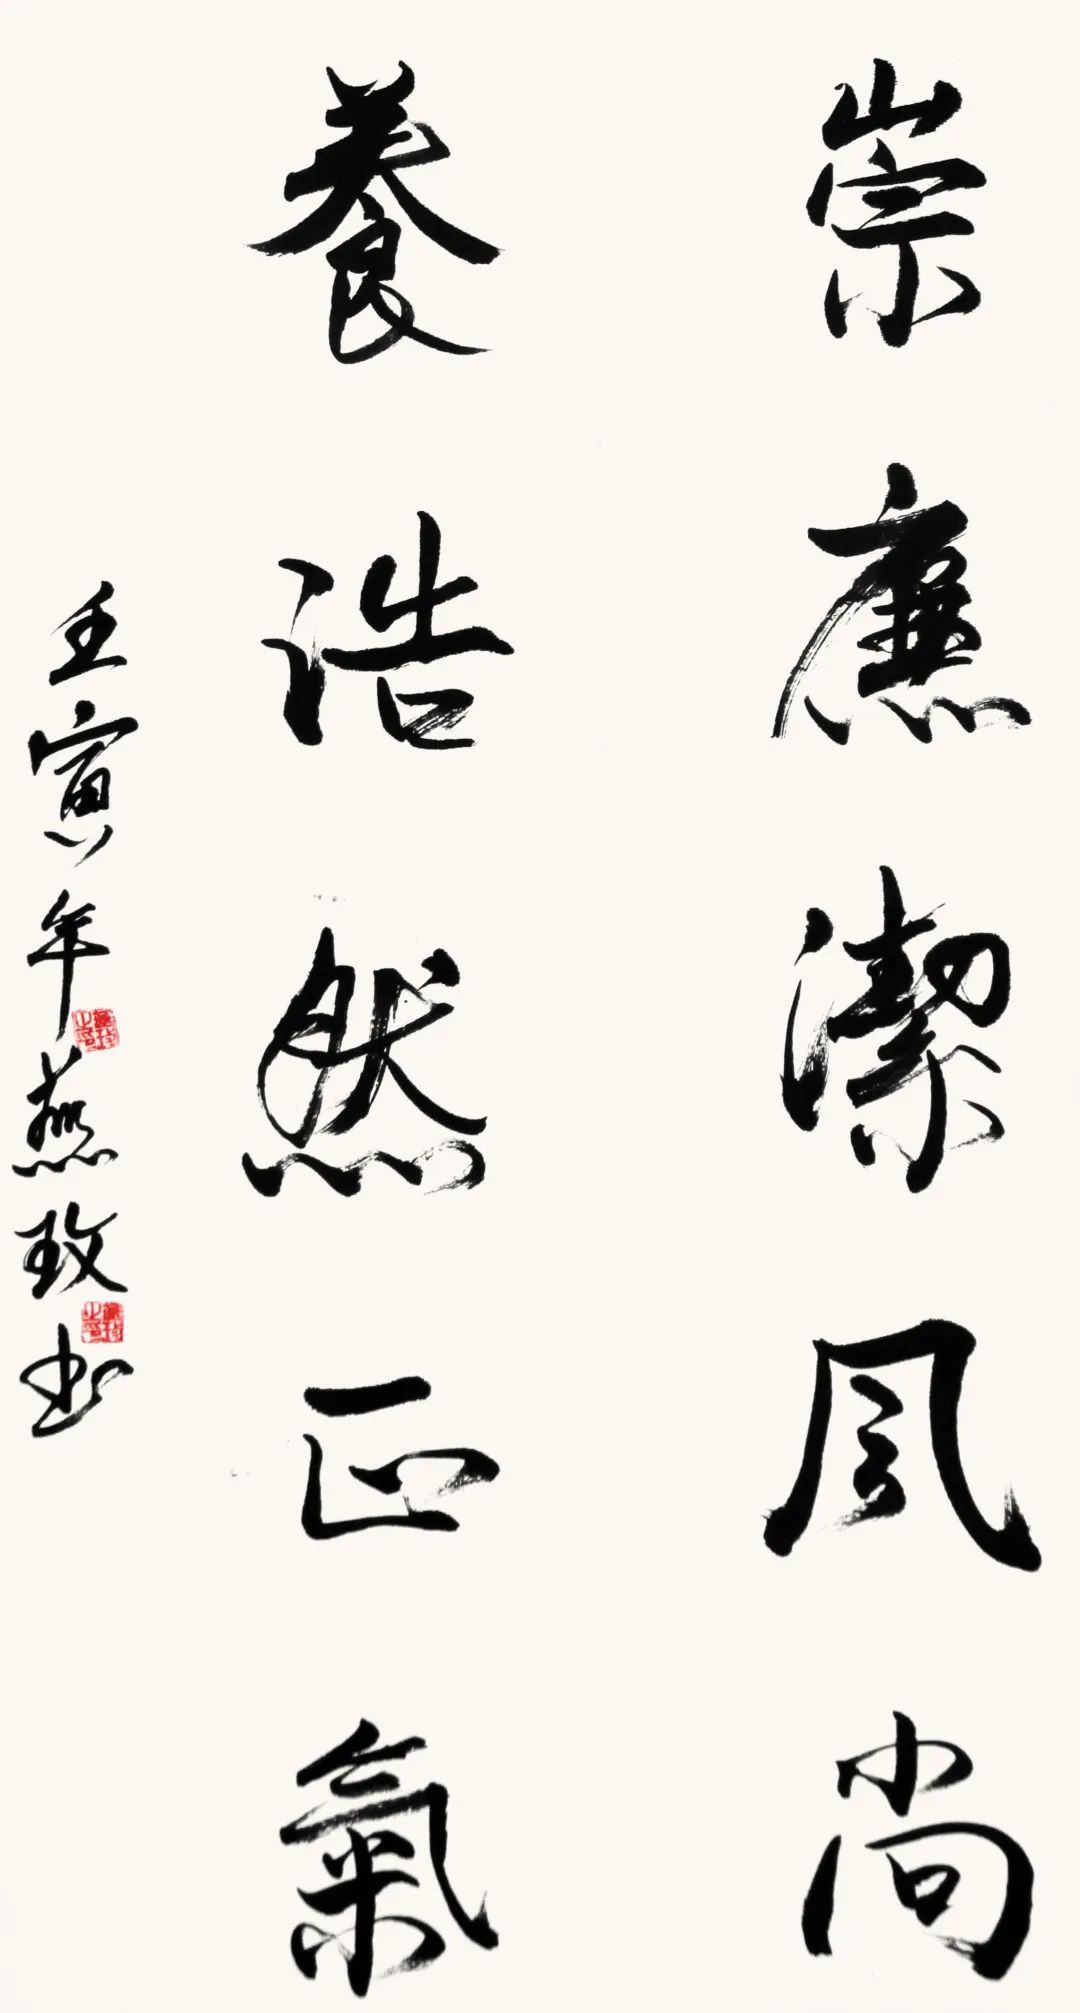 崇廉潔风尚
養浩然正氣
壬寅年燕玫书